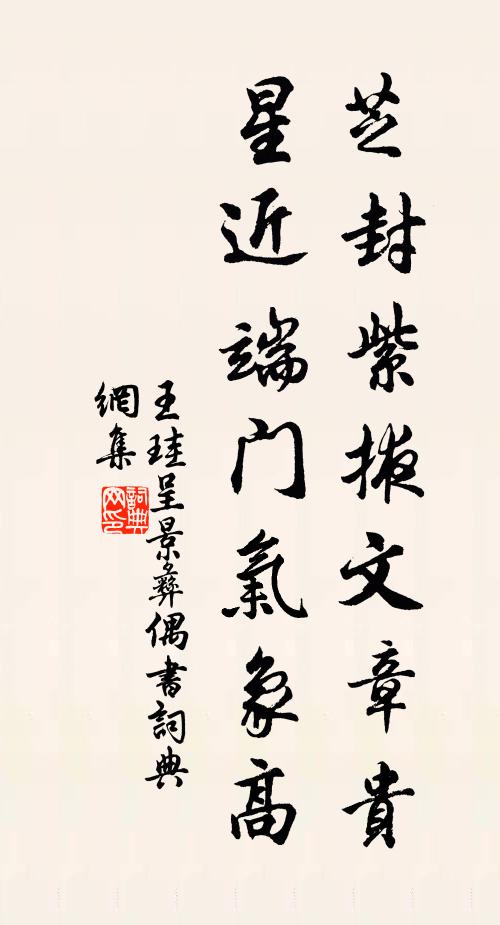 芝封紫掖文章貴
星近端門氣象高
王珪呈景彞偶書詞典
網集
詞典
网印